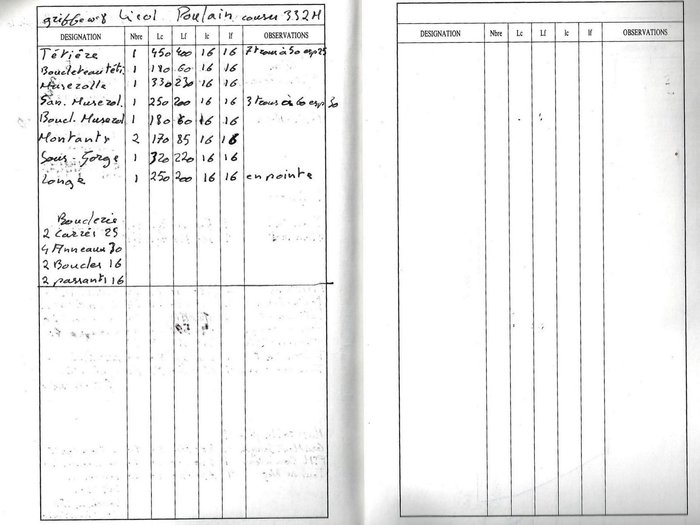 griffe n°8 Licol Poulain cousu 332M
DESIGNATION Nbre Lc Lf lc lf OBSERVATIONS
Têtière 1 450 400 16 16 7 trous à 50 esp 25
Boucleteau têti. 1 180 60 16 16
Muserolle 1 330 230 16 16
San. Muserol. 1 250 200 16 16 3 trous à 60 esp 30
Boucl. Muserol 1 180 60 16 16
Montants 2 170 85 16 16
Sous-Gorge 1 320 220 16 16
Longe 1 250 200 16 16 en pointe
Bouclerie
2 Carrés 25
4 Anneaux 30
2 Boucles 16
2 passants 16
DESIGNATION Nbre Lc Lf lc lf OBSERVATIONS